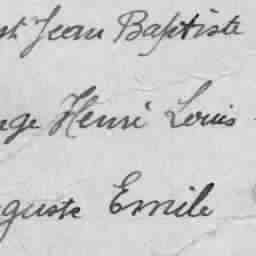 st Jean Baptiste
nge Henri Louis
guste Emile